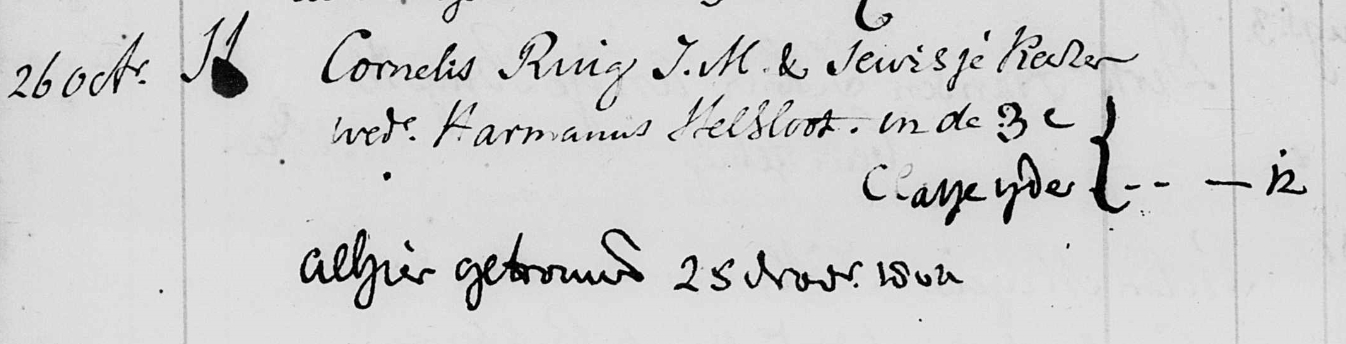 26 octr. Cornelis Ruig J.M. & Jewisje Keeker
wede. Harmanus Helsloot. in de 3e
Classe yder - - - 12
alhier getrouwd 25 Novr. 1804